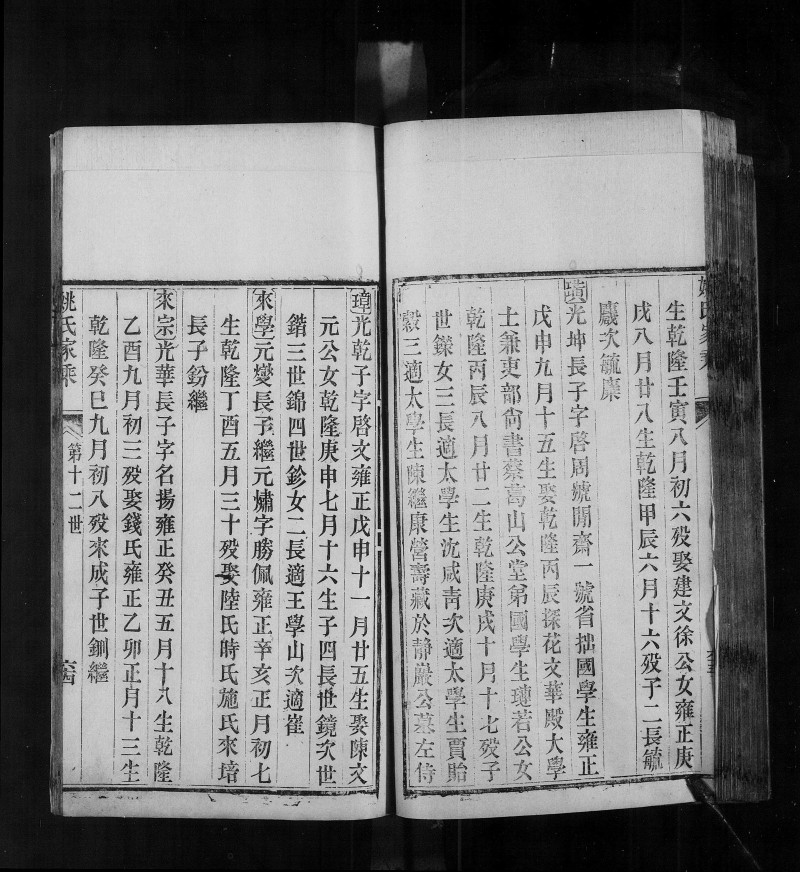 姚氏家乘
生乾隆壬寅八月初六歿娶建文徐公女雍正庚
戌八月廿八生乾隆甲辰六月十六歿子二長毓
麎次毓麇
璜光坤長子字啓周號閒齋一號省拙國學生雍正
戊申九月十五生娶乾隆丙辰探花文華殿大學
士兼吏部尚書蔡葛山公堂弟國學生璉若公女
乾隆丙辰八月廿二生乾隆庚戌十月十七歿子
世鏷女三長適太學生沈咸青次適太學生賈貽
穀三適太學生陳繼康營壽藏於靜巖公墓左侍
璋光乾子字啓文雍正戊申十一月廿五生娶陳文
元公女乾隆庚申七月十六生子四長世鏡次世
鍇三世錦四世鉁女二長適王學山次適崔
來學元燮長子繼元㷿字勝佩雍正辛亥正月初七
生乾隆丁酉五月三十歿娶陸氏時氏施氏來培
長子鈖繼
來宗光華長子字名揚雍正癸丑五月十八生乾隆
乙酉九月初三歿娶錢氏雍正乙卯正月十三生
乾隆癸巳九月初八歿來成子世鍘繼
姚氏家乘
第十二世